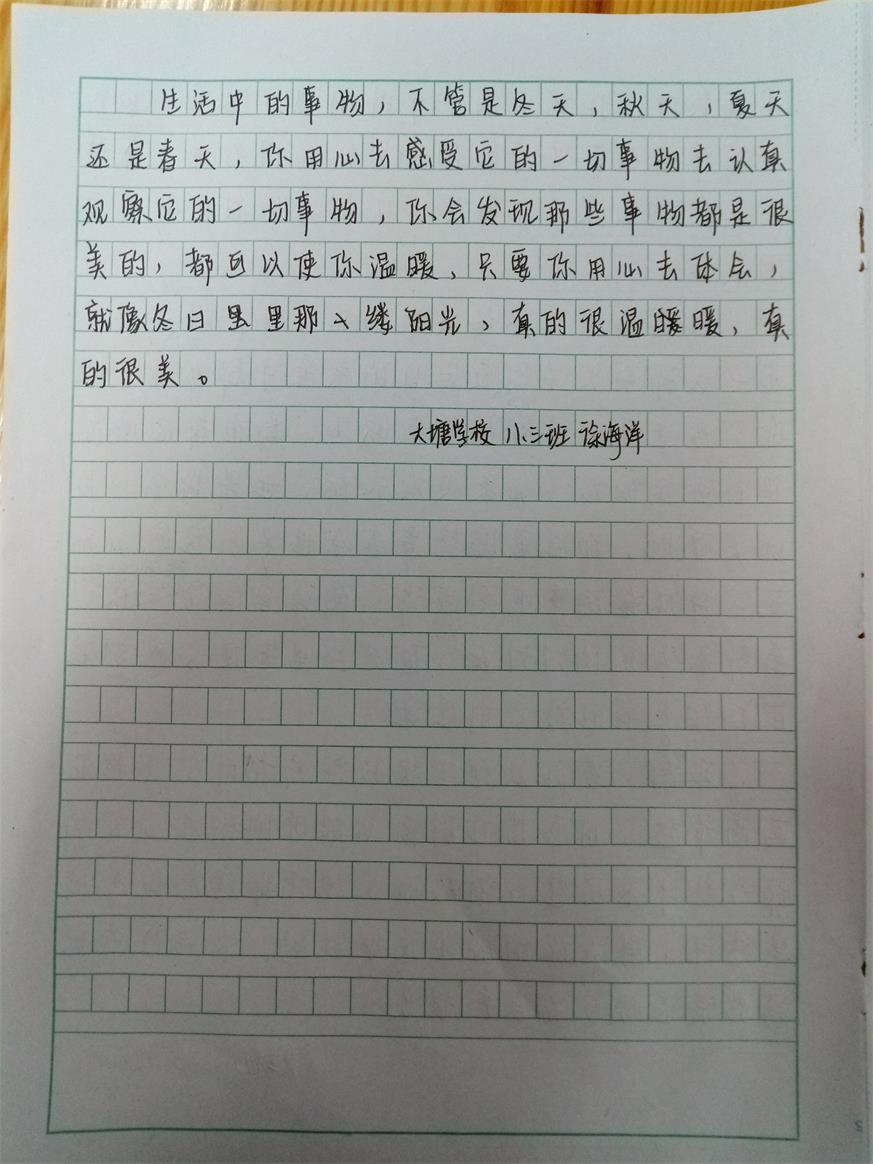 生活中的事物，不管是冬天，秋天，夏天
还是春天，你用心去感受它的一切事物去认真
观察它的一切事物，你会发现那些事物都是很
美的，都可以使你温暖、只要你用心去体会，
就像冬日里里那一缕阳光，真的很温暖暖，真
的很美。
大塘学校 八.三班 徐海洋